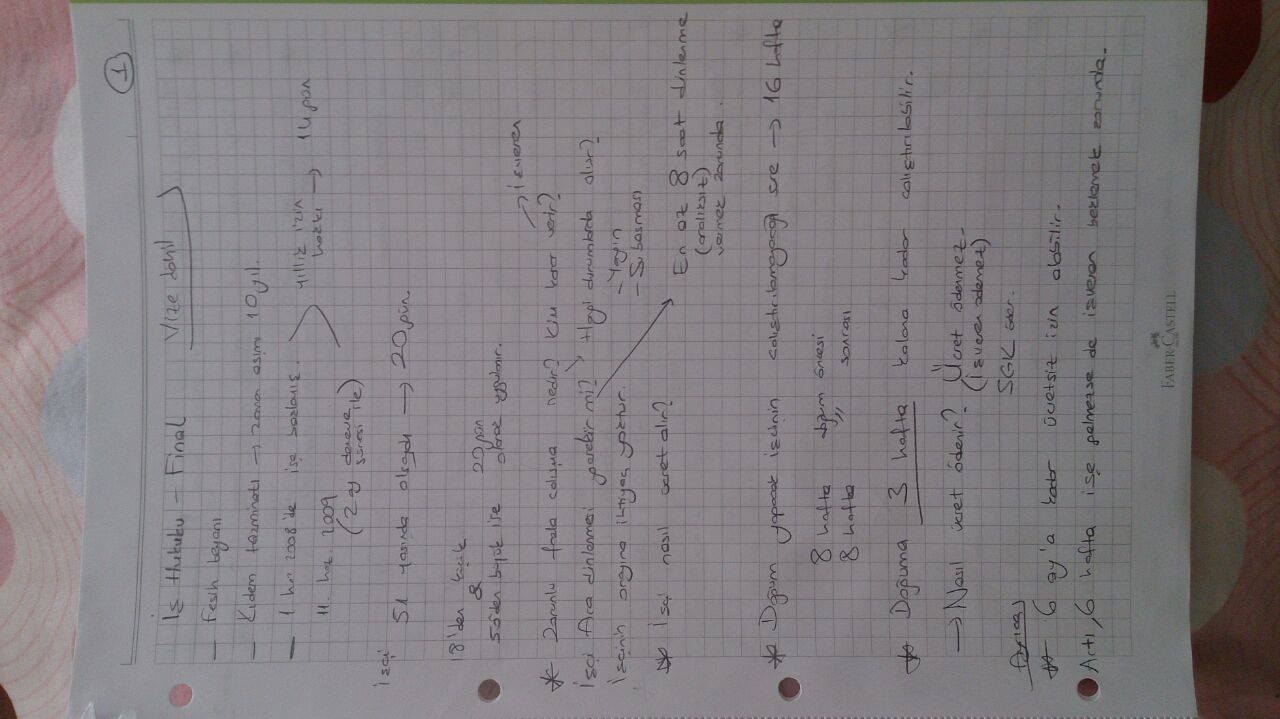 1
İş Hukuku – Final Vize dahil
— Fesih beyanı
— Kıdem tazminatı → zaman aşımı 10 yıl.
— 1 haz 2008'de işe başlamış.
11. haz. 2009
(2 ay deneme süresi ile)
yıllık izin hakkı → 14 gün
İşçi
51 yaşında olsaydı → 20 gün
18'den küçük
&
50den büyük ise 20 gün olarak uygulanır.
→ İşveren
* Zorunlu fazla çalışma nedir? Kim karar verir?
İşçi Ara dinlenmesi gerekir mi? Hangi durumlarda olur?
İşçinin onayına ihtiyaç yoktur. – Yangın
– Su basması
* İşçi nasıl ücret alır?
En az 8 saat dinlenme
(aralıksız)
vermek zorunda.
* Doğum yapacak işçinin çalıştırılamayacağı süre → 16 hafta
8 hafta doğum öncesi
8 hafta " sonrası
* Doğuma 3 hafta kalana kadar çalıştırılabilir.
→ Nasıl ücret ödenir? Ücret ödenmez.
(İşveren ödemez)
SGK öder.
Ayrıca,
* 6 ay'a kadar ücretsiz izin alabilir.
Artı, 6 hafta işe gelmezse de işveren beklemek zorunda.
FABER-CASTELL